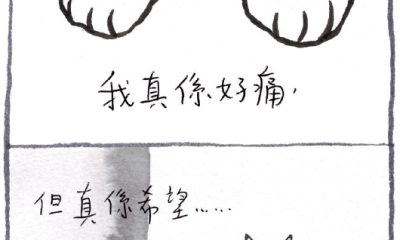 我真係好痛，
但真係希望……